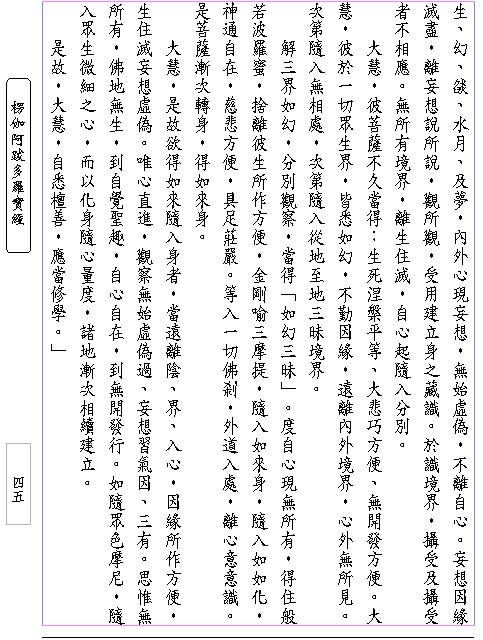 生、幻、燄、水月、及夢，內外心現妄想，無始虛偽，不離自心。妄想因緣
滅盡，離妄想說所說，觀所觀，受用建立身之藏識。於識境界，攝受及攝受
者不相應。無所有境界，離生住滅，自心起隨入分別。
大慧，彼菩薩不久當得：生死涅槃平等、大悲巧方便、無開發方便。大
慧，彼於一切眾生界，皆悉如幻，不勤因緣，遠離內外境界，心外無所見。
次第隨入無相處，次第隨入從地至地三昧境界。
解三界如幻，分別觀察，當得「如幻三昧」。度自心現無所有，得住般
若波羅蜜，捨離彼生所作方便，金剛喻三摩提，隨入如來身，隨入如如化，
神通自在，慈悲方便，具足莊嚴。等入一切佛剎，外道入處，離心意意識。
是菩薩漸次轉身，得如來身。
大慧，是故欲得如來隨入身者，當遠離陰、界、入心，因緣所作方便，
生住滅妄想虛偽。唯心直進，觀察無始虛偽過、妄想習氣因、三有。思惟無
所有，佛地無生，到自覺聖趣，自心自在，到無開發行。如隨眾色摩尼，隨
入眾生微細之心，而以化身隨心量度，諸地漸次相續建立。
是故，大慧，自悉檀善，應當修學。」
楞伽阿跋多羅寶經
四五